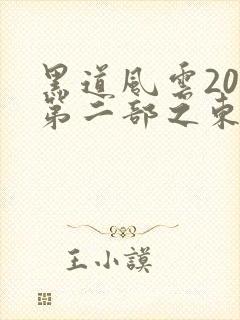 黑道風雲20
第二部之東
王小謨